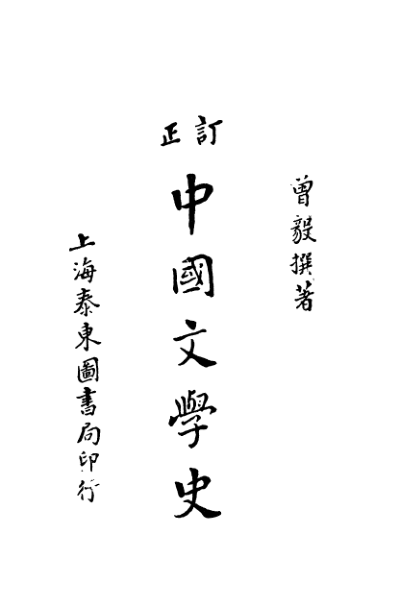 曾毅撰著
訂正
中國文學史
上海泰東圖書局印行